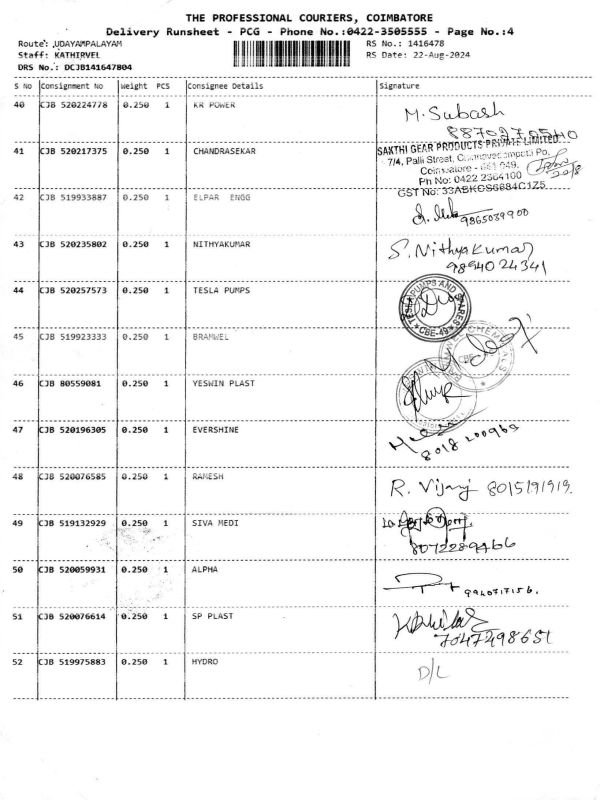 THE PROFESSIONAL COURIERS, COIMBATORE
Delivery Runsheet - PCG - Phone No.:0422-3505555 - Page No.:4
Route: ,UDAYAMPALAYAM RS No.: 1416478
Staff: KATHIRVEL RS Date: 22-Aug-2024
DRS No.: DCJB141647804
S No Consignment No Weight PCS Consignee Details Signature
40 CJB 520224778 0.250 1 KR POWER M. Subash
8870270540
41 CJB 520217375 0.250 1 CHANDRASEKAR SAKTHI GEAR PRODUCTS PRIVATE LIMITED
7/4, Palli Street, Po,
Coimbatore - 641 049.
Ph No: 0422 2364100 22/8
GST No: 33ABKCS6684C1Z5
42 CJB 519933887 0.250 1 ELPAR ENGG
9865039900
43 CJB 520235802 0.250 1 NITHYAKUMAR S. Nithyakumar
9894024341
44 CJB 520257573 0.250 1 TESLA PUMPS TESLA PUMPS AND SPARES
CBE-49
45 CJB 519923333 0.250 1 BRAMWEL CHEMICALS
46 CJB 80559081 0.250 1 YESWIN PLAST
47 CJB 520196305 0.250 1 EVERSHINE
8018200969
48 CJB 520076585 0.250 1 RAMESH R. Vijay 8015191919.
49 CJB 519132929 0.250 1 SIVA MEDI
8072289466
50 CJB 520059931 0.250 1 ALPHA 9940717156.
51 CJB 520076614 0.250 1 SP PLAST
7047498651
52 CJB 519975883 0.250 1 HYDRO D/L